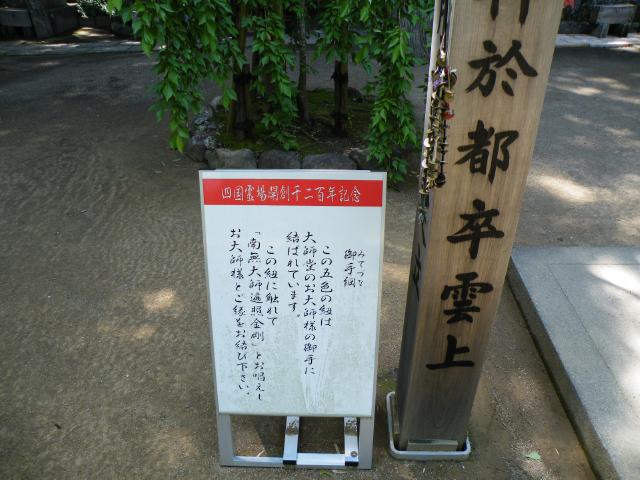 四国霊場開創千二百年記念
みてづな
御手綱
この五色の紐は
大師堂のお大師様の御手に
結ばれています。
この紐に触れて
「南無大師遍照金剛」とお唱えし
お大師様とご縁をお結び下さい。
於都卒雲上